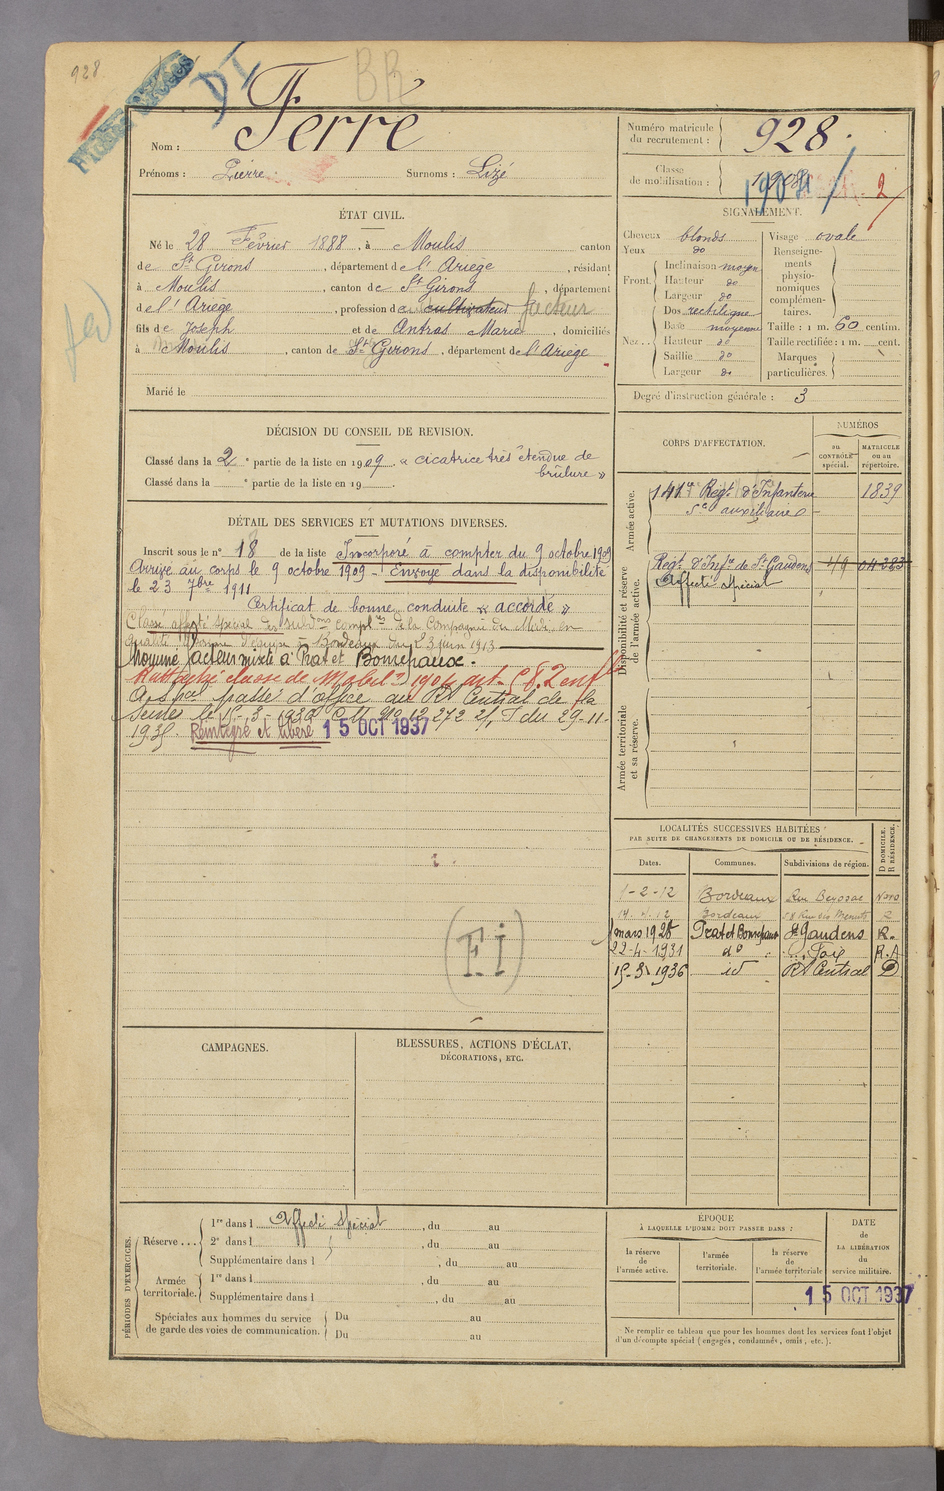 928
BR
Nom : Ferré
Prénoms : Pierre Surnoms : Lizé
Numéro matricule du recrutement : 928.
Classe de mobilisation : 1904 2
ÉTAT CIVIL.
Né le 28 Février 1888, à Moulis canton
de St Girons, département de l'Ariège, résidant
à Moulis, canton de St Girons, département
de l'Ariège, profession de cultivateur facteur
fils de Joseph et de Antras Marie, domiciliés
à Moulis, canton de St Girons, département de l'Ariège
Marié le
SIGNALEMENT.
Cheveux blonds
Yeux do
Front. Inclinaison moyen
Hauteur do
Largeur do
Nez. Dos rectiligne
Base moyenne
Hauteur do
Saillie do
Largeur do
Visage ovale
Renseignements physionomiques complémentaires.
Taille : 1 m. 60 centim.
Taille rectifiée : 1 m. cent.
Marques particulières.
Degré d'instruction générale : 3
DÉCISION DU CONSEIL DE REVISION.
Classé dans la 2e partie de la liste en 1909. « cicatrice très étendue de
brûlure »
Classé dans la e partie de la liste en 19 .
DÉTAIL DES SERVICES ET MUTATIONS DIVERSES.
Inscrit sous le n° 18 de la liste Incorporé à compter du 9 octobre 1909
Arrivé au corps le 9 octobre 1909 - Envoyé dans la disponibilité
le 23 7bre 1911
Certificat de bonne conduite « accordé »
Classé affecté spécial des subdons complres de la Compagnie du Midi, en
qualité d'homme d'équipe à Bordeaux du 23 juin 1913
facteur mixte à Prat et Bonrepaux.
classe de Mobil 1904 art. 58. 2 enfts
A. Spal passé d'office au RA Central de la
Seine le 15-3-1936 C.M. No 12.272 du 29-11-
1935. Réintégré et libéré 15 OCT 1937
(FI)
CORPS D'AFFECTATION.
NUMÉROS
au CONTRÔLE spécial.
MATRICULE ou au répertoire.
Armée active.
141e Régt d'Infanterie 1839
Sce auxiliaire
Disponibilité et réserve de l'armée active.
Régt d'Infie de St Gaudens
Affecté Spécial
Armée territoriale et sa réserve.
LOCALITÉS SUCCESSIVES HABITÉES
PAR SUITE DE CHANGEMENTS DE DOMICILE OU DE RÉSIDENCE.
Dates. Communes. Subdivisions de région. D DOMICILE. R RÉSIDENCE.
1-2-12 Bordeaux Rue Beyssac
Bordeaux R
mars 1928 Prat et Bonrepaux St Gaudens R.
22-4-1931 do Foix R.A
15-3-1936 id RA Central D
CAMPAGNES.
BLESSURES, ACTIONS D'ÉCLAT,
DÉCORATIONS, ETC.
PÉRIODES D'EXERCICES.
Réserve... 1re dans l Affecté Spécial, du au
2e dans l , du au
Supplémentaire dans l , du au
Armée territoriale. 1re dans l , du au
Supplémentaire dans l , du au
Spéciales aux hommes du service de garde des voies de communication. Du au
Du au
ÉPOQUE
À LAQUELLE L'HOMME DOIT PASSER DANS :
la réserve de l'armée active.
l'armée territoriale.
la réserve de l'armée territoriale
DATE DE LA LIBÉRATION du service militaire.
15 OCT 1937
Ne remplir ce tableau que pour les hommes dont les services font l'objet
d'un décompte spécial (engagés, condamnés, omis, etc.).